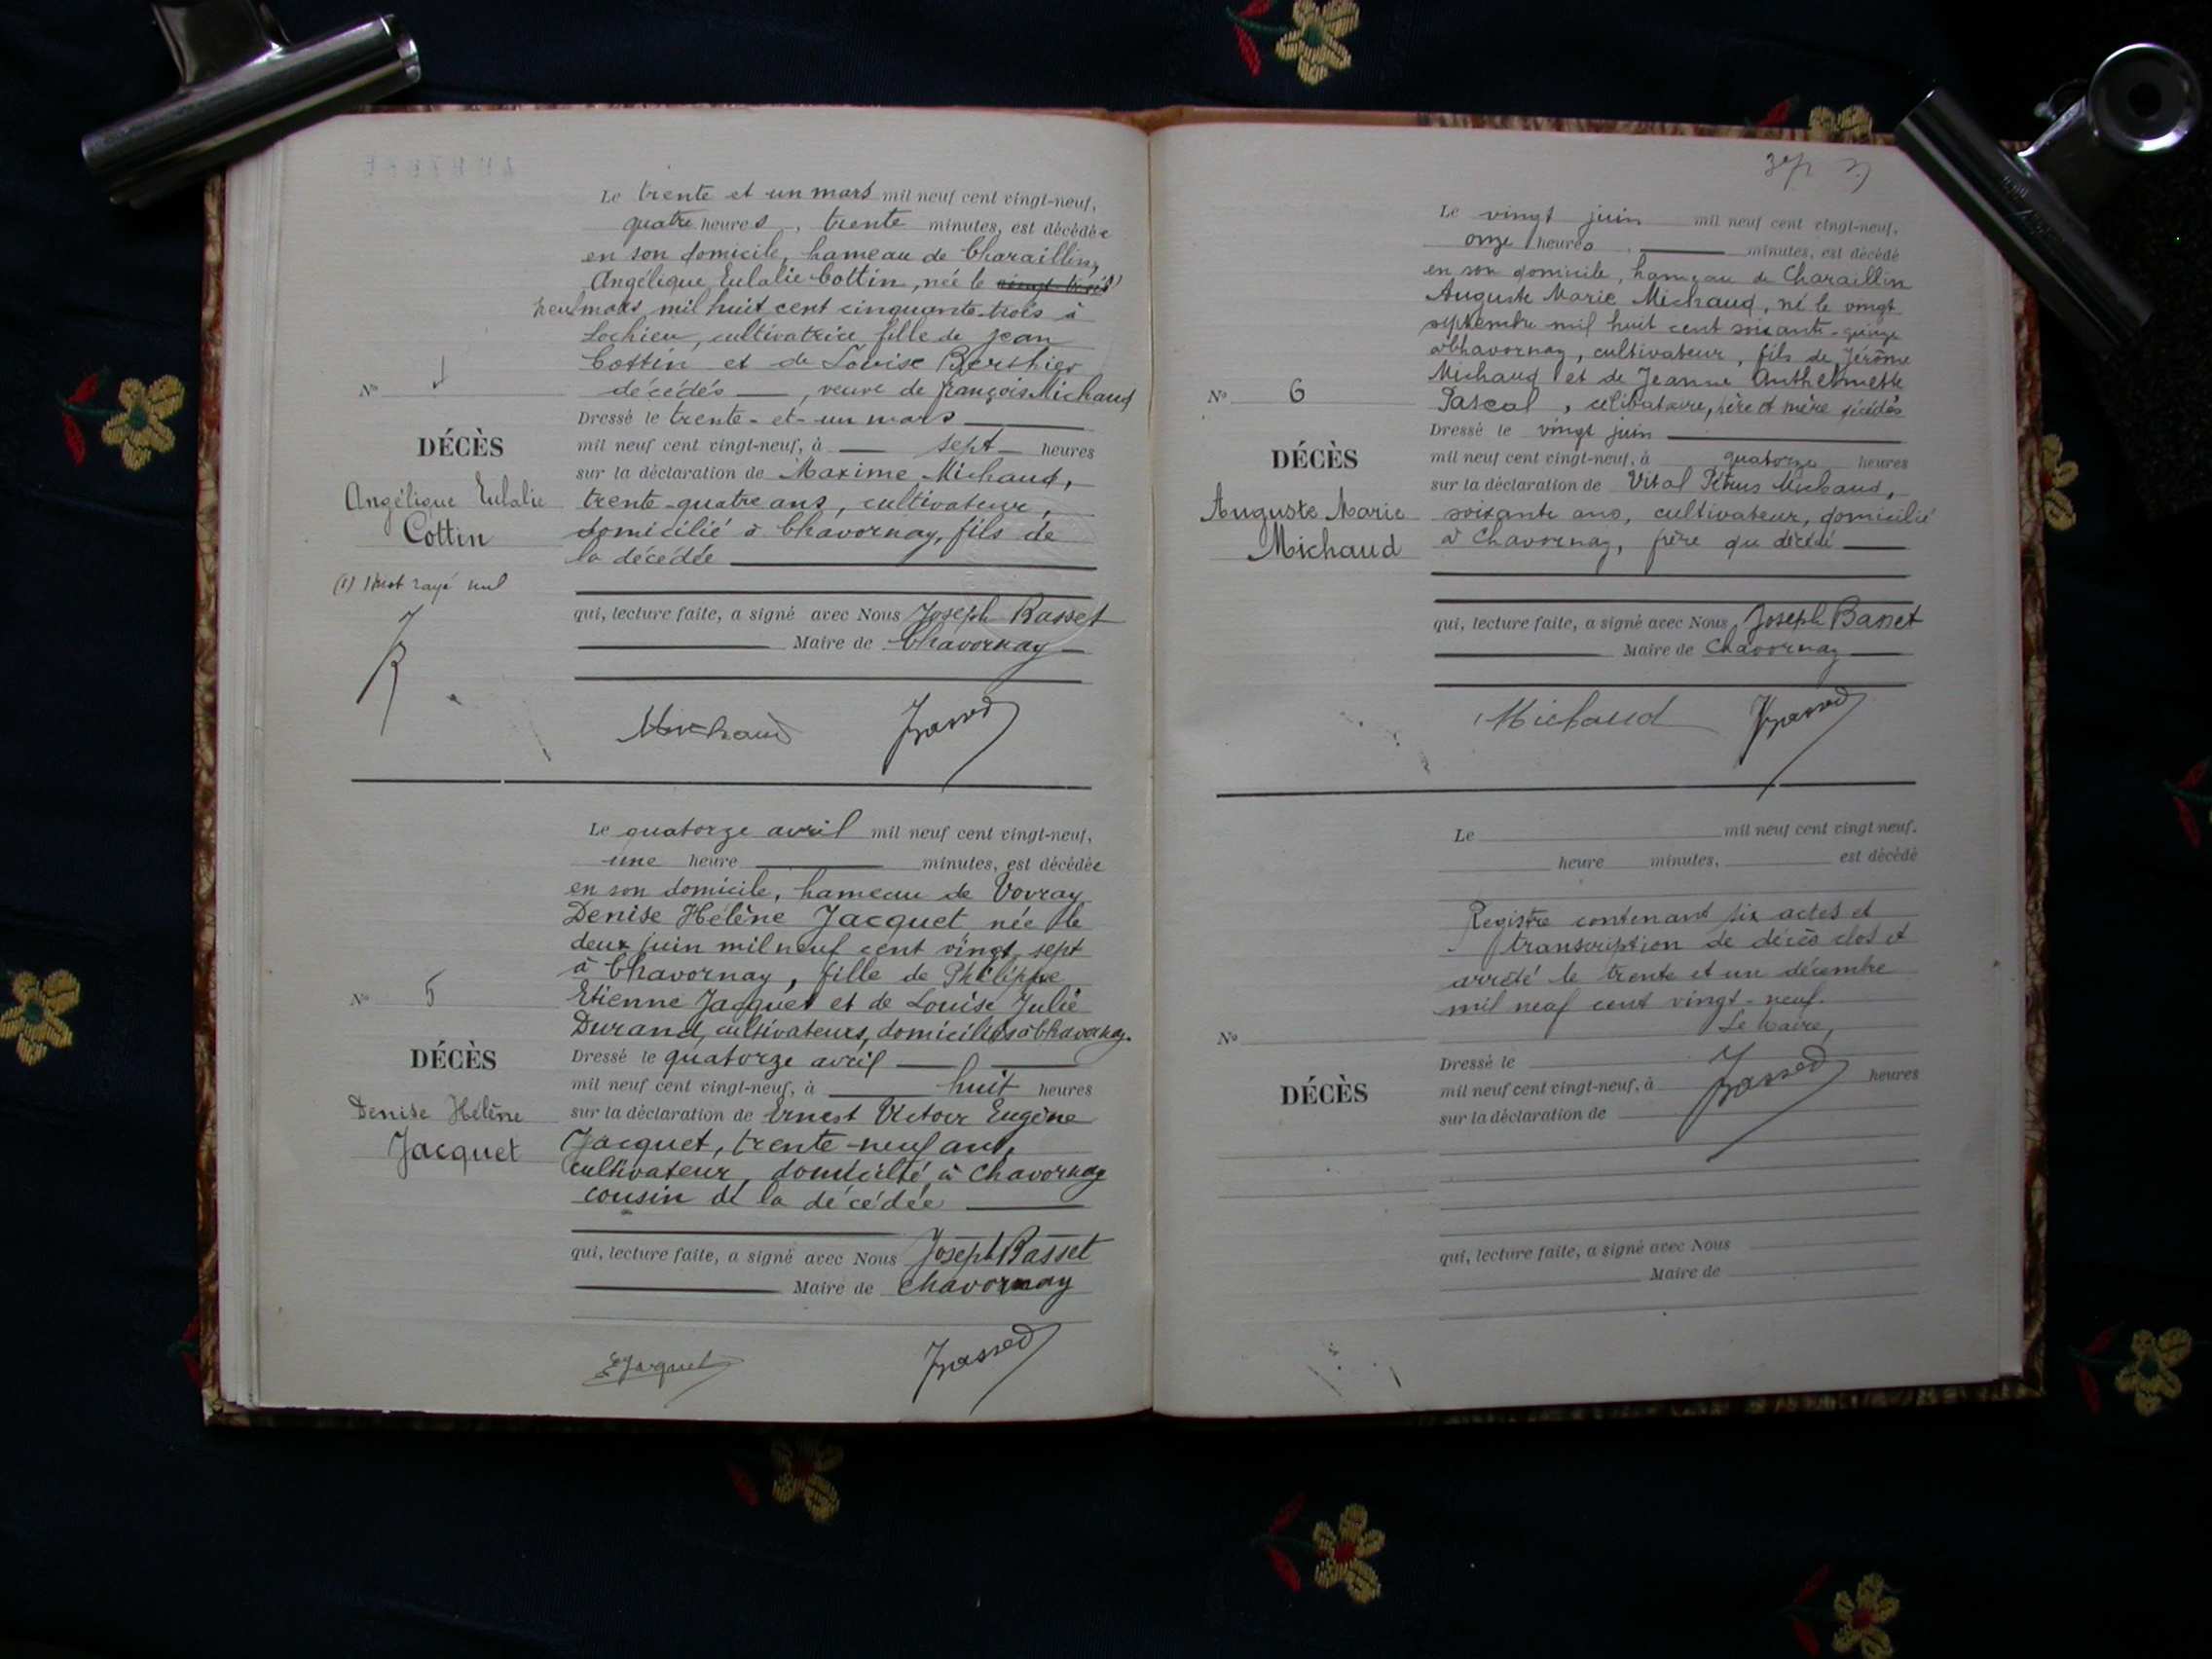 Le trente et un mars mil neuf cent vingt-neuf,
quatre heures, trente minutes, est décédée
en son domicile, hameau de Charaillin,
Angélique Eulalie Cottin, née le vingt-trois (1)
neuf mars mil huit cent cinquante-trois à
Lochieu, cultivatrice, fille de Jean
Cottin et de Louise Berthier
décédés, veuve de François Michaud
Nº 4
Dressé le trente-et-un mars
mil neuf cent vingt-neuf, à sept heures
DÉCÈS
sur la déclaration de Maxime Michaud,
Angélique Eulalie
Cottin
trente-quatre ans, cultivateur,
domicilié à Chavornay, fils de
la décédée
(1) Mot rayé nul
qui, lecture faite, a signé avec Nous Joseph Basset
Maire de Chavornay
Michaud JBasset
Le quatorze avril mil neuf cent vingt-neuf,
une heure minutes, est décédée
en son domicile, hameau de Vovray
Denise Hélène Jacquet née le
deux juin mil neuf cent vingt sept
à Chavornay, fille de Philippe
Nº 5
Etienne Jacquet et de Louise Julie
Durand, cultivateurs, domiciliés à Chavornay.
DÉCÈS
Dressé le quatorze avril
mil neuf cent vingt-neuf, à huit heures
Denise Hélène
Jacquet
sur la déclaration de Ernest Victor Eugène
Jacquet, trente-neuf ans,
cultivateur, domicilié à Chavornay
cousin de la décédée
qui, lecture faite, a signé avec Nous Joseph Basset
Maire de Chavornay
EJacquet JBasset
Le vingt juin mil neuf cent vingt-neuf,
onze heures, minutes, est décédé
en son domicile, hameau de Charaillin
Auguste Marie Michaud, né le vingt
septembre mil huit cent soixante-quinze
à Chavornay, cultivateur, fils de Jérôme
Michaud et de Jeanne Anthelmette
Nº 6
Pascal, célibataire, père et mère décédés
Dressé le vingt juin
DÉCÈS
mil neuf cent vingt-neuf, à quatorze heures
sur la déclaration de Vital Pétrus Michaud,
Auguste Marie
Michaud
soixante ans, cultivateur, domicilié
à Chavornay, frère du décédé
qui, lecture faite, a signé avec Nous Joseph Basset
Maire de Chavornay
Michaud JBasset
Le mil neuf cent vingt-neuf.
heure minutes, est décédé
Registre contenant six actes et
transcription de décès clos et
arrêté le trente et un décembre
mil neuf cent vingt-neuf.
Le Maire,
Nº
Dressé le
JBasset
DÉCÈS
mil neuf cent vingt-neuf, à heures
sur la déclaration de
qui, lecture faite, a signé avec Nous
Maire de